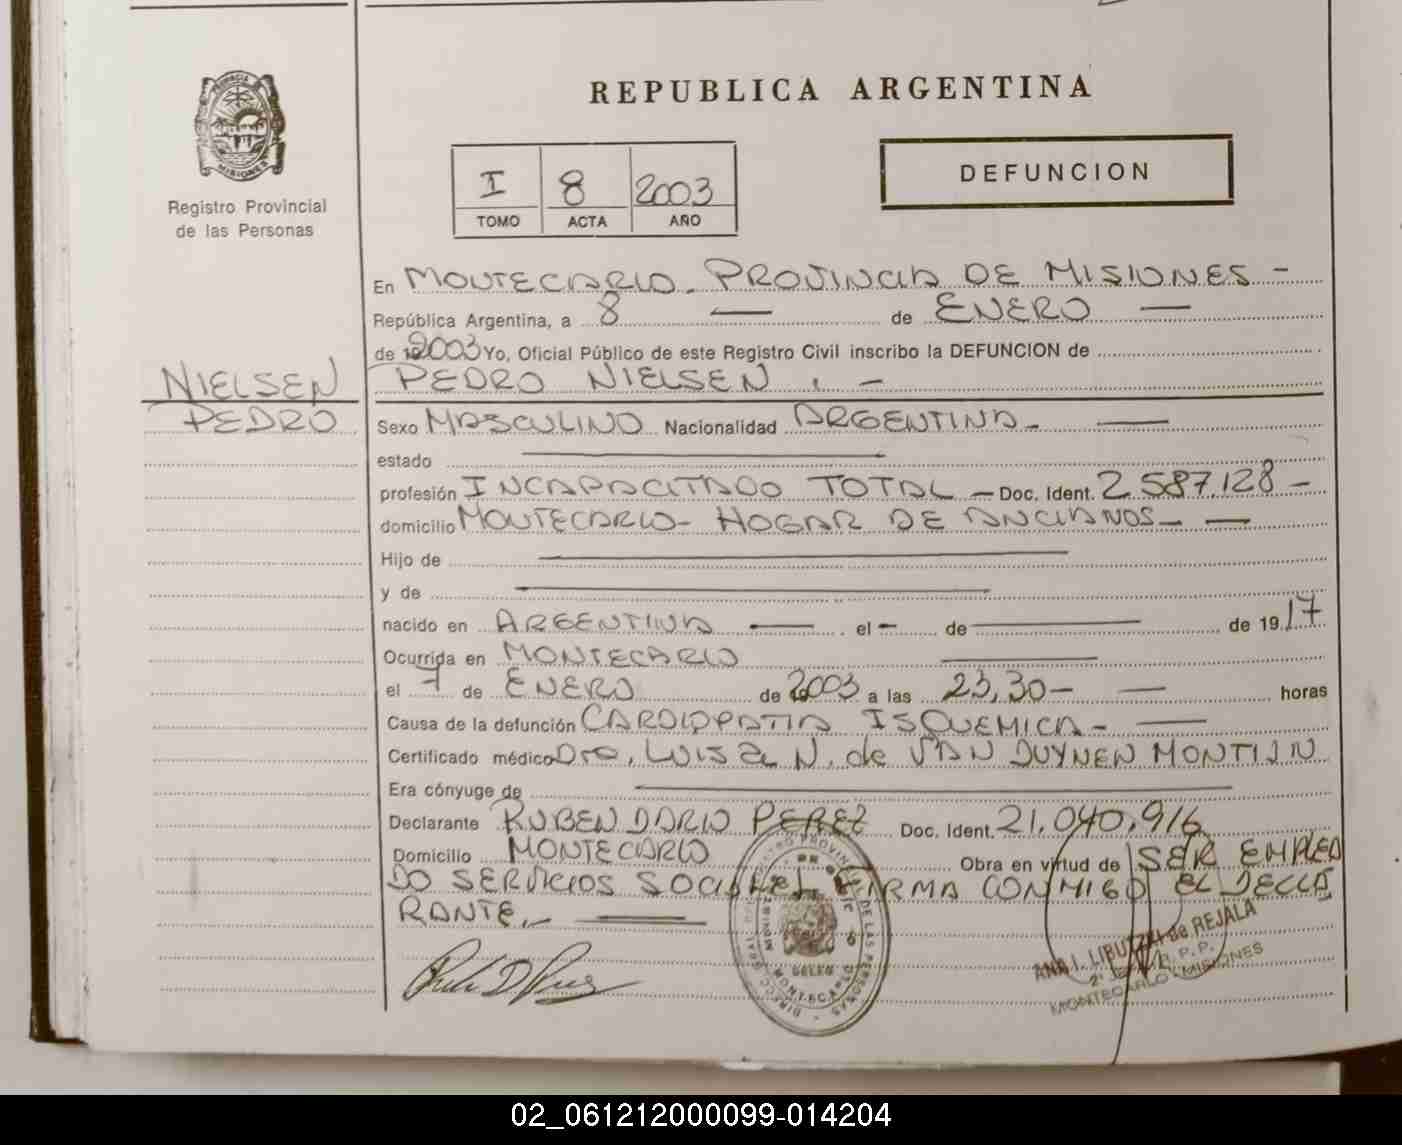 PROVINCIA DE
MISIONES
Registro Provincial
de las Personas
REPUBLICA ARGENTINA
DEFUNCION
I 8 2003
TOMO ACTA AÑO
En MONTECARLO. PROVINCIA DE MISIONES -
República Argentina, a 8 — de ENERO —
de 2003 Yo, Oficial Público de este Registro Civil inscribo la DEFUNCION de
NIELSEN
PEDRO
PEDRO NIELSEN . -
Sexo MASCULINO Nacionalidad ARGENTINA - —
estado —
profesión INCAPACITADO TOTAL - Doc. Ident. 2.587.128 -
domicilio MONTECARLO - HOGAR DE ANCIANOS - —
Hijo de —
y de —
nacido en ARGENTINA — el - de — de 1917
Ocurrida en MONTECARLO —
el 7 de ENERO de 2003 a las 23,30 - — horas
Causa de la defunción CARDIOPATIA ISQUEMICA - —
Certificado médico Dra. LUISA N. de VAN DUYNEN MONTIJN
Era cónyuge de —
Declarante RUBEN DARIO PEREZ Doc. Ident. 21.040.916
Domicilio MONTECARLO Obra en virtud de SER EMPLEA
DO SERVICIOS SOCIALES FIRMA CONMIGO EL DECLA
RANTE. - —
ANA I. LIBUTZKI de REJALA
MONTECARLO - MISIONES
02_061212000099-014204